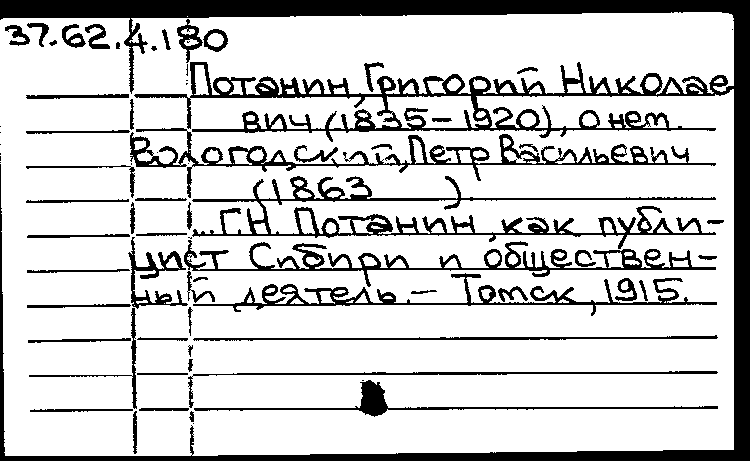 37.62.4.180
Потанин, Григорий Николае
вич (1835-1920), о нем.
Вологодский, Петр Васильевич
(1863 )
...Г.Н. Потанин, как публи-
цист Сибири и обществен-
ный деятель. - Томск, 1915.